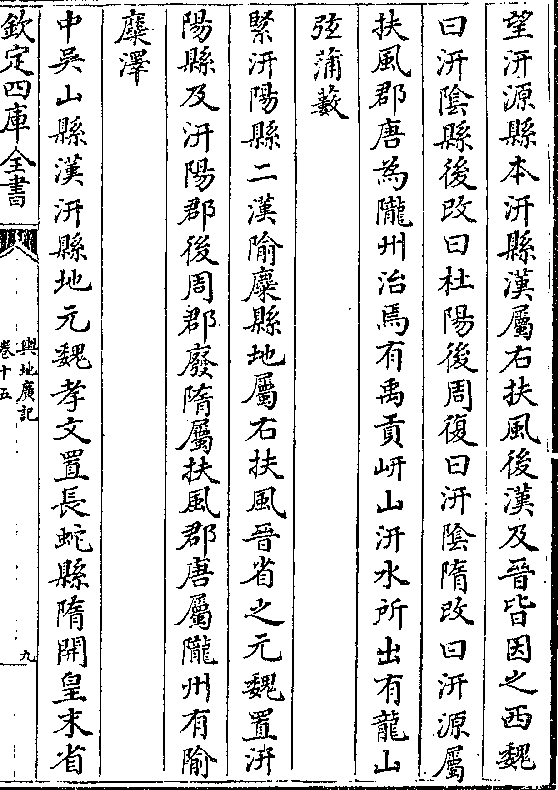 望汧源縣本汧縣漢屬右扶風後漢及晉皆因之西魏
曰汧隂縣後改曰杜陽後周復曰汧隂隋改曰汧源屬
扶風郡唐為隴州治焉有禹貢岍山汧水所出有龍山
弦蒲藪
緊汧陽縣二漢隃麋縣地屬右扶風晉省之元魏置汧
陽縣及汧陽郡後周郡廢隋屬扶風郡唐屬隴州有隃
麋澤
中吳山縣漢汧縣地元魏孝文置長蛇縣隋開皇末省
欽定四庫全書
輿地廣記
卷十五
九